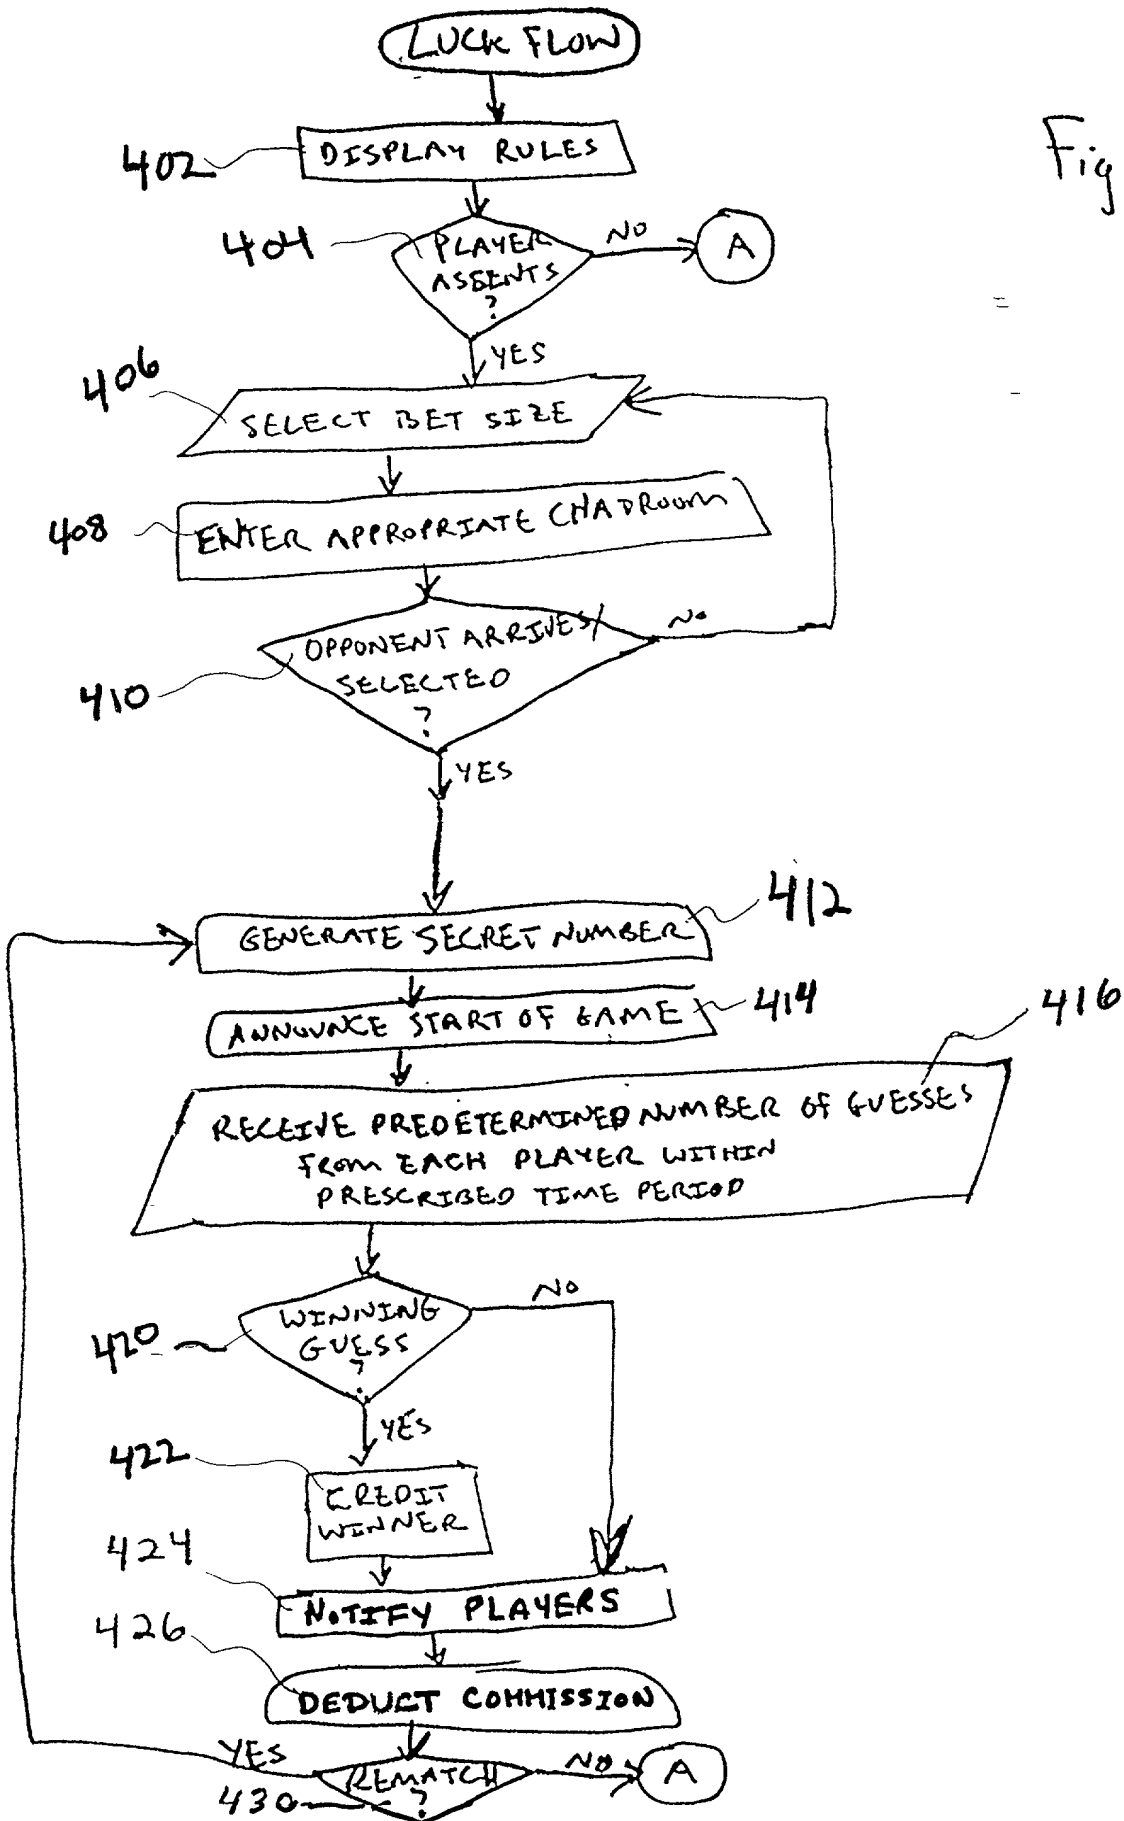 LUCK FLOW
402
DISPLAY RULES
Fig
404
PLAYER
ASSENTS
?
NO
A
YES
406
SELECT BET SIZE
408
ENTER APPROPRIATE CHADROOM
OPPONENT ARRIVES/
SELECTED
?
NO
410
YES
412
GENERATE SECRET NUMBER
414
ANNOUNCE START OF GAME
416
RECEIVE PREDETERMINED NUMBER OF GUESSES
FROM EACH PLAYER WITHIN
PRESCRIBED TIME PERIOD
420
WINNING
GUESS
?
NO
YES
422
CREDIT
WINNER
424
NOTIFY PLAYERS
426
DEDUCT COMMISSION
YES
REMATCH
?
NO
A
430